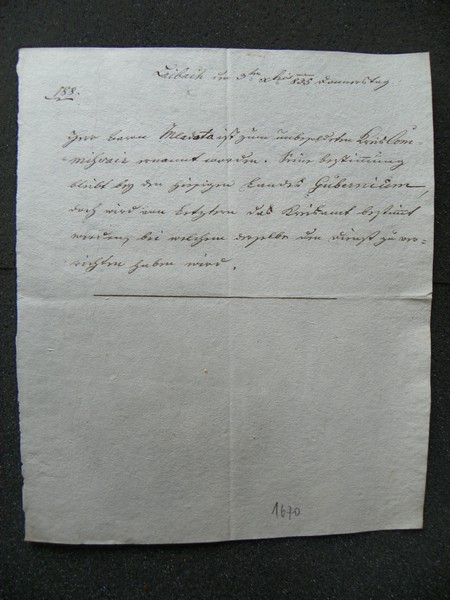 Laibach den 3ten 835 Donnerstag
188.
Herr Baron Mladota ist zum unbesoldeten Kreis Com-
missair ernannt worden. Seine Bestimmung
bleibt bey dem hiesigen Landes Gubernium,
doch wird von Letztern das Kreisamt bestimmt
werden, bei welchem derselbe den Dienst zu ver-
richten haben wird.
1670